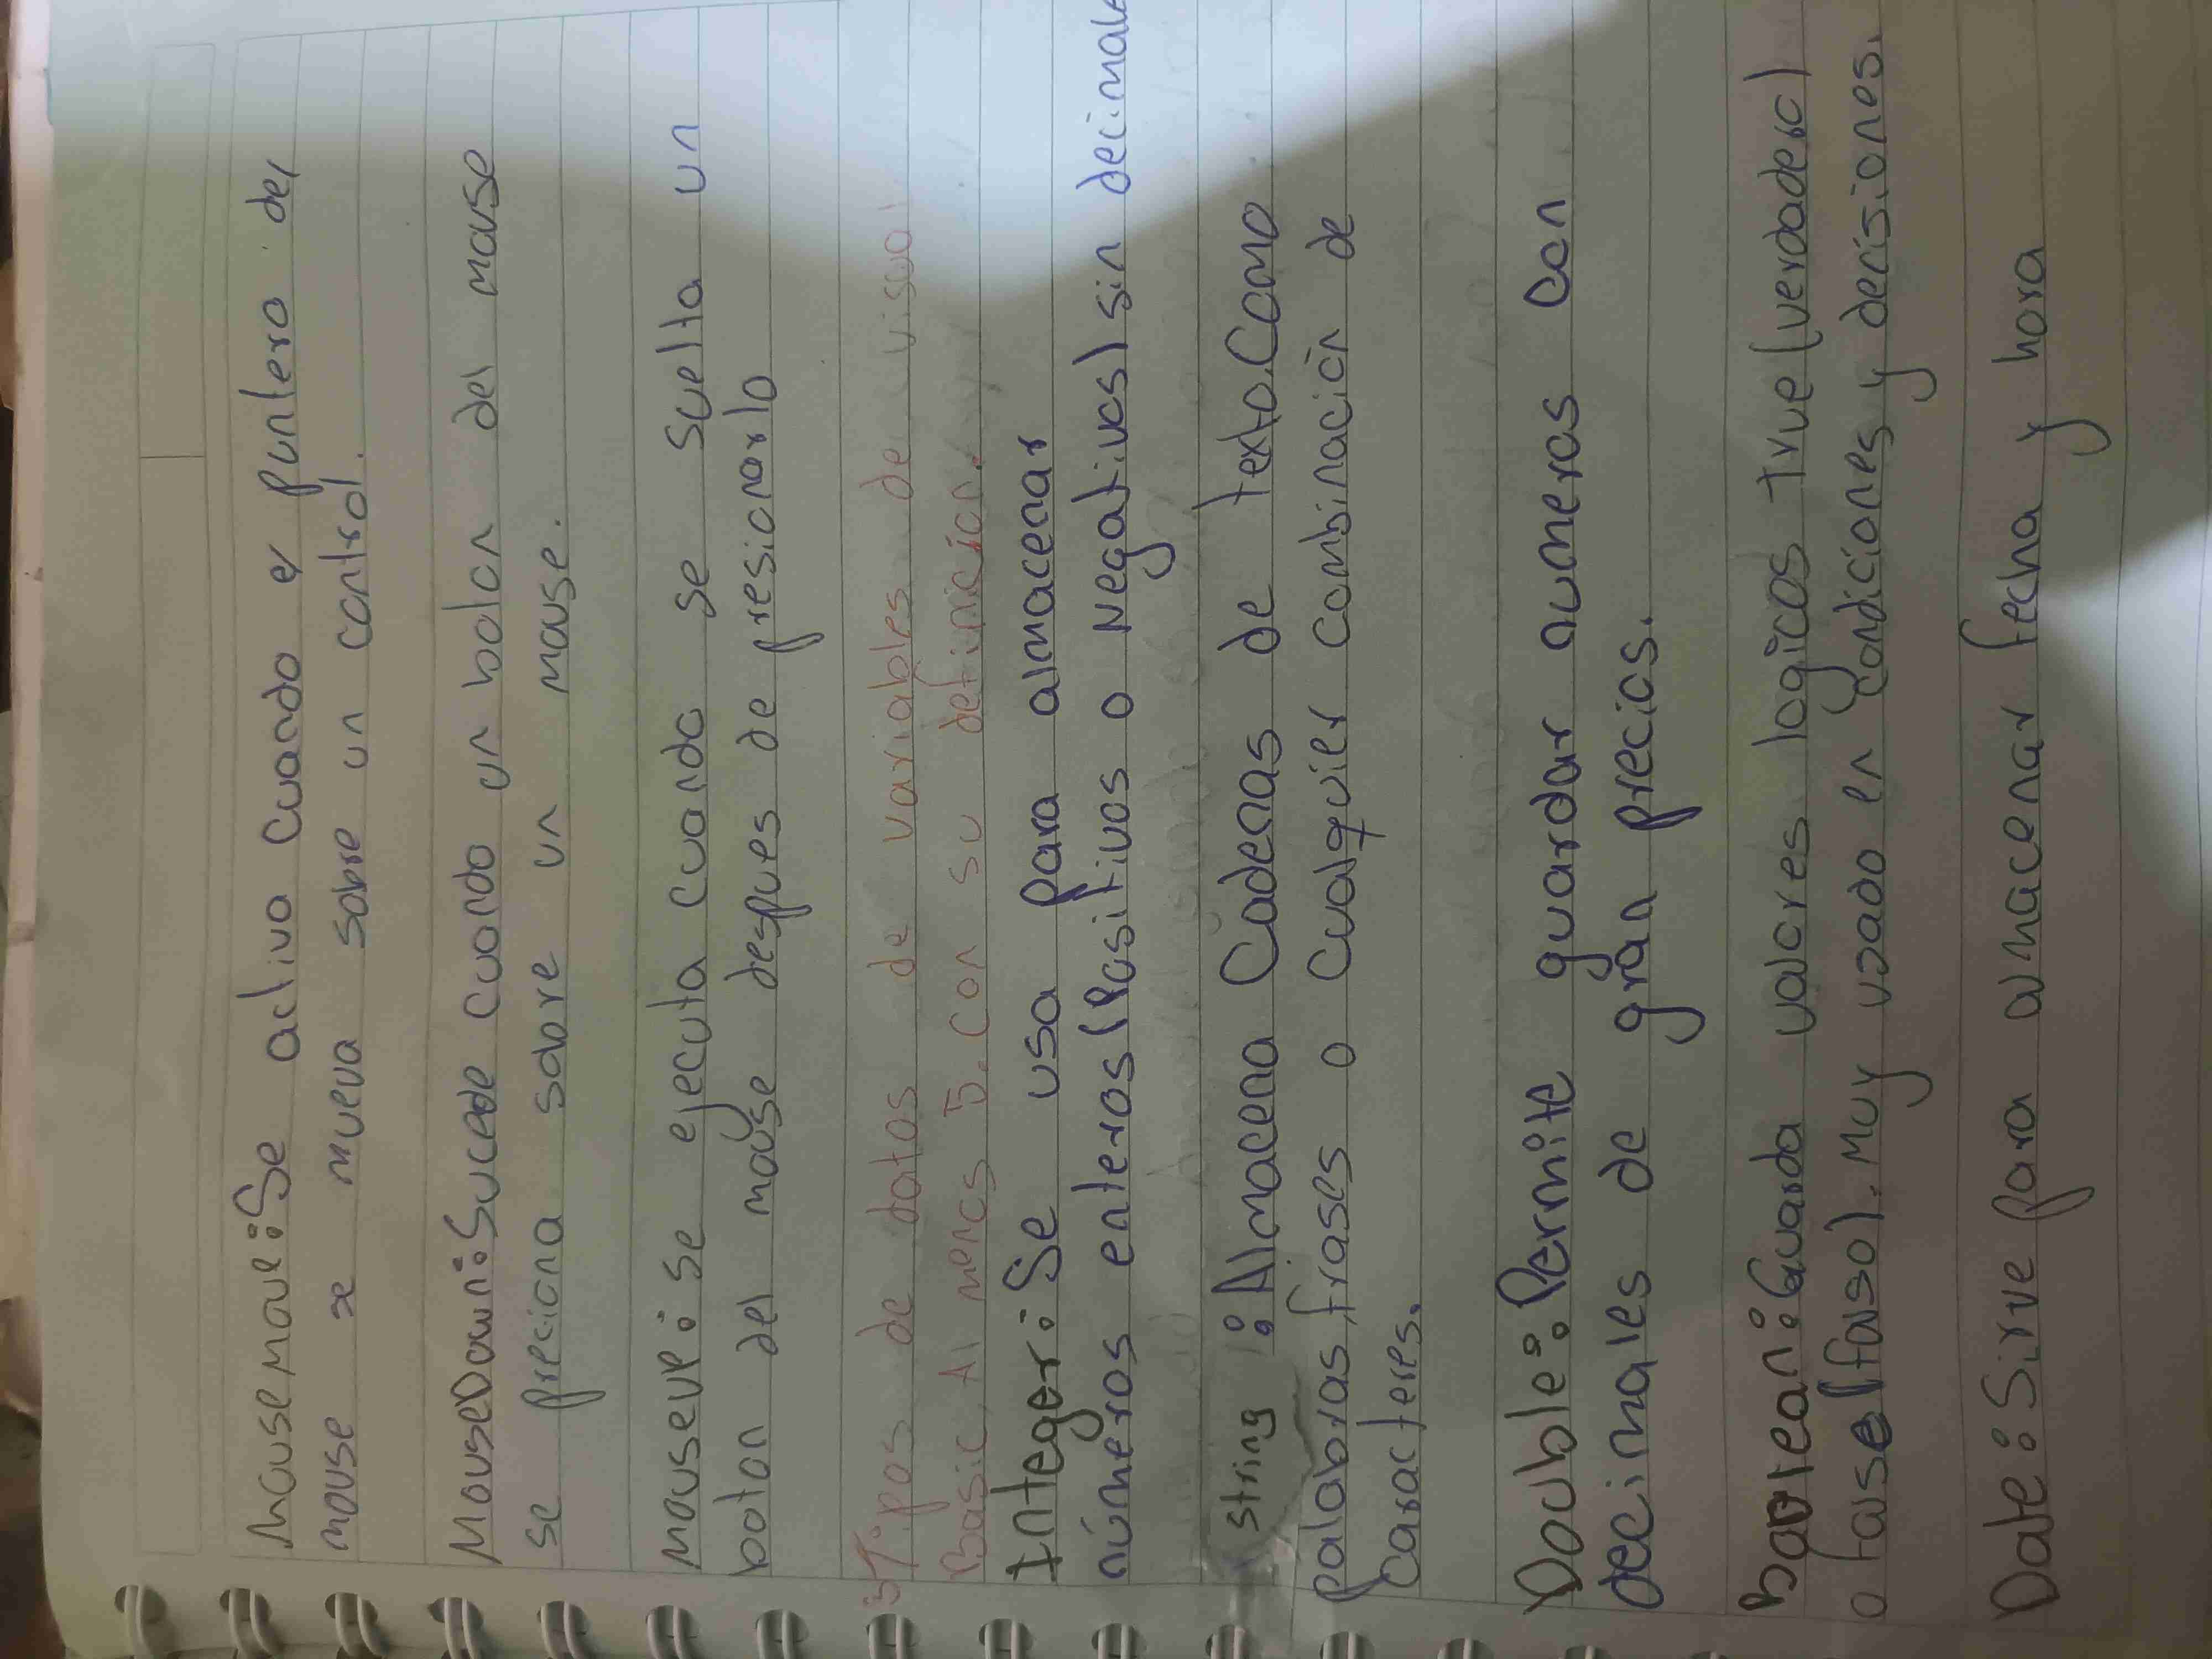 Mousemove: Se activa cuando el puntero del
mouse se mueva sobre un control.
MouseDown: Sucede cuando un boton del mouse
se preciona sobre un mouse.
mouseup: se ejecuta cuando se suelta un
boton del mouse despues de presionarlo
5 Tipos de datos de variables de visual
Basic, Al menos 5. Con su definición.
Integer: Se usa para almacenar
números enteros (Positivos o Negativos) sin decimale
string : Almacena Cadenas de texto. Como
palabras, frases o Cualquier Combinación de
Caracteres.
Double: Permite guardar numeros con
decimales de gran precios.
Boolean: Guarda valores logicos True (verdadero)
o false (falso). Muy usado en condiciones y decisiones.
Date: Sirve para almacenar fecha y hora